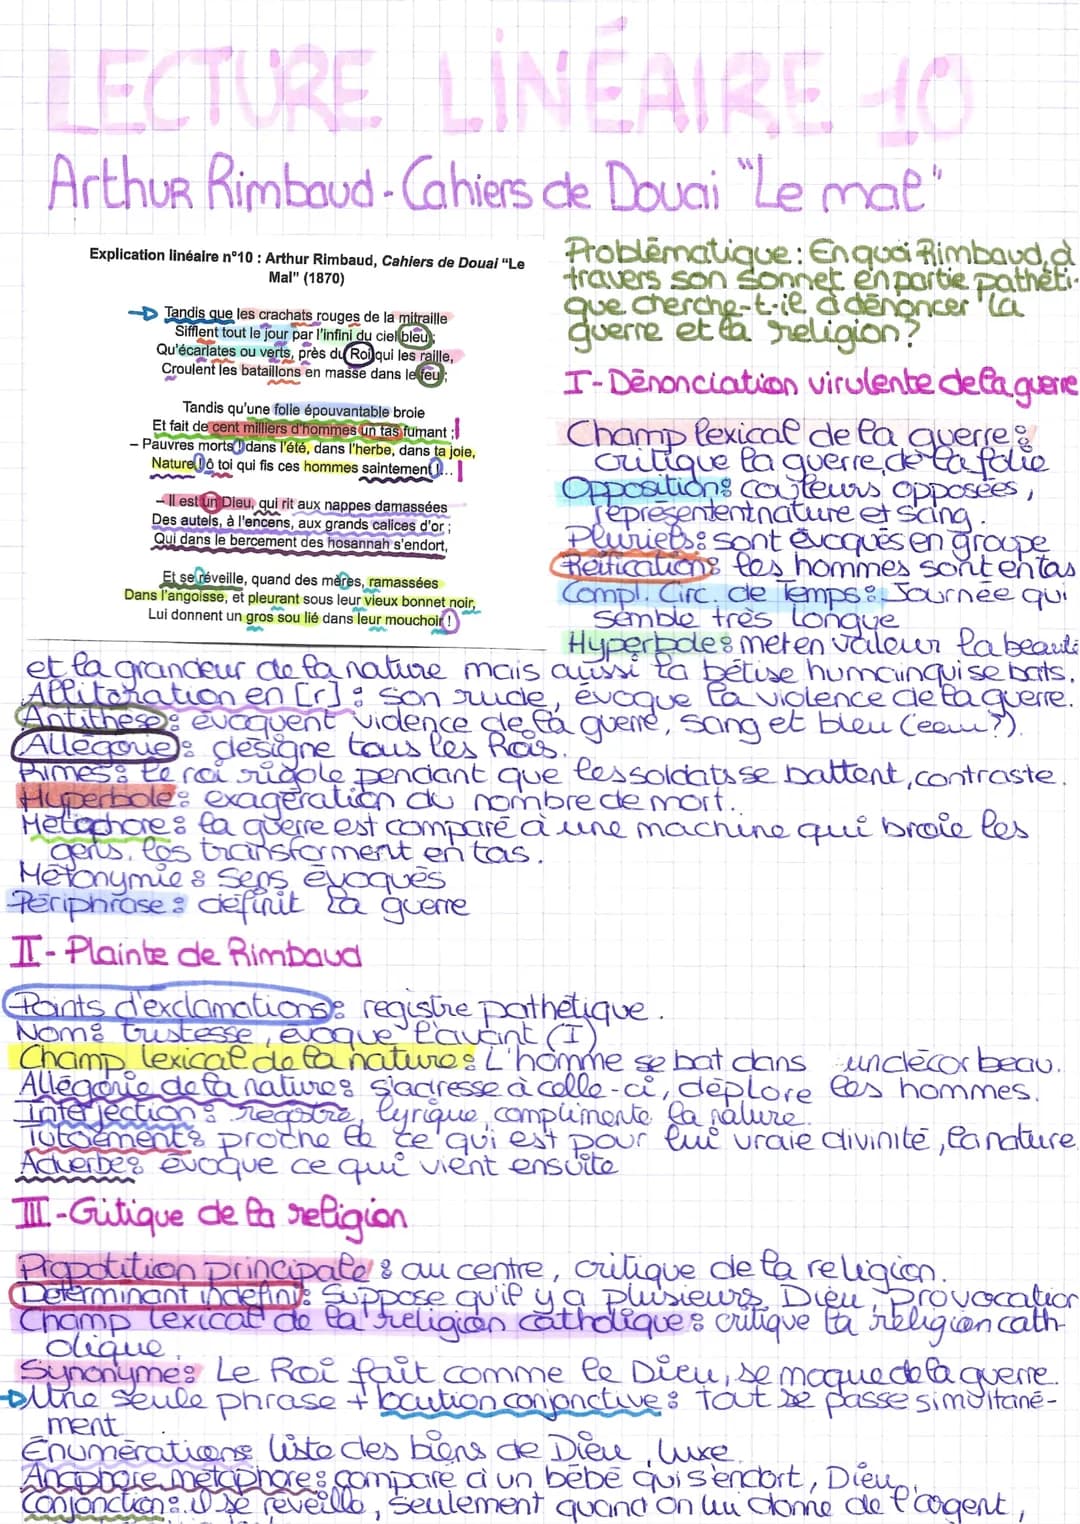 LECTURE LINÉAIRE 10
Arthur Rimbaud - Cahiers de Douai "Le mal"
Explication linéaire n°10 : Arthur Rimbaud, Cahiers de Douai "Le
Mal" (1870)
Tandis que les crachats rouges de la mitraille
Sifflent tout le jour par l'infini du ciel bleu ;
Qu'écarlates ou verts, près du Roi qui les raille,
Croulent les bataillons en masse dans le feu ;
Tandis qu'une folie épouvantable broie
Et fait de cent milliers d'hommes un tas fumant ;
– Pauvres morts ! dans l'été, dans l'herbe, dans ta joie,
Nature ! ô toi qui fis ces hommes saintement !...
– Il est un Dieu, qui rit aux nappes damassées
Des autels, à l'encens, aux grands calices d'or ;
Qui dans le bercement des hosannah s'endort,
Et se réveille, quand des mères, ramassées
Dans l'angoisse, et pleurant sous leur vieux bonnet noir,
Lui donnent un gros sou lié dans leur mouchoir !
Problématique : En quoi Rimbaud, à
travers son sonnet en partie pathéti-
que cherche-t-il à dénoncer la
guerre et la religion?
I- Dénonciation virulente de la guerre
Champ lexical de la guerre :
critique la guerre, de la folie
Oppositions couleurs opposées,
représentent nature et sang.
Pluriels : sont évoqués en groupe
Réification : les hommes sont en tas
Compl. Circ. de Temps : Journée qui
semble très longue
Hyperbole : met en valeur la beauté
et la grandeur de la nature mais aussi la bêtise humain qui se bats.
Allitération en [r] : son rude, évoque la violence de la guerre.
Antithèse : évoquent violence de la guerre, sang et bleu (eau ?).
Allégorie : désigne tous les Rois.
Rimes : le roi rigole pendant que les soldats se battent, contraste.
Hyperbole : exagération du nombre de mort.
Métaphore : la guerre est comparé à une machine qui broie les
gens, les transforment en tas.
Métonymie : sens évoqués
Périphrase : définit la guerre
II- Plainte de Rimbaud
Points d'exclamations : registre pathétique.
Nom : tristesse, évoque l'avant (I)
Champ lexical de la nature : L'homme se bat dans un décor beau.
Allégorie de la nature : s'adresse à celle-ci, déplore les hommes.
Interjection : registre lyrique, complimente la nature.
Tutoiement : proche de ce qui est pour lui vraie divinité, la nature
Adverbe : évoque ce qui vient ensuite
III- Critique de la religion
Propotition principale : au centre, critique de la religion.
Déterminant indéfini : Suppose qu'il y a plusieurs Dieu, provocation
Champ lexical de la religion catholique : critique la religion cath-
olique.
Synonyme : Le Roi fait comme le Dieu, se moque de la guerre.
Une seule phrase + locution conjonctive : Tout se passe simultané-
ment
Énumérations liste des biens de Dieu, luxe.
Anaphore métaphore : compare à un bébé qui s'endort, Dieu.
Conjonction : il se réveille, seulement quand on lui donne de l'argent,